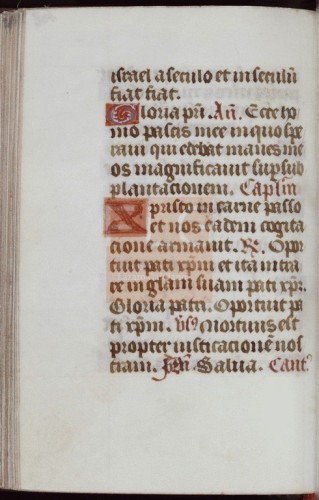 israel a seculo et in seculū
fiat fiat.
Gloria pri. An. Ecce ho
mo pacis mee in quo spe
raui qui edebat panes me
os magnificauit super sub
plantacionem. Caplm
Xpristo in carne passo
et uos eadem cogita
cione armauit. R. Opor
tuit pati xpm et ita intra
re in glām suam pati xpz.
Gloria patri. Oportuit pa
ti xpm. vs Mortuus est
propter iustificacionē nos
tram. Salua. Cant.